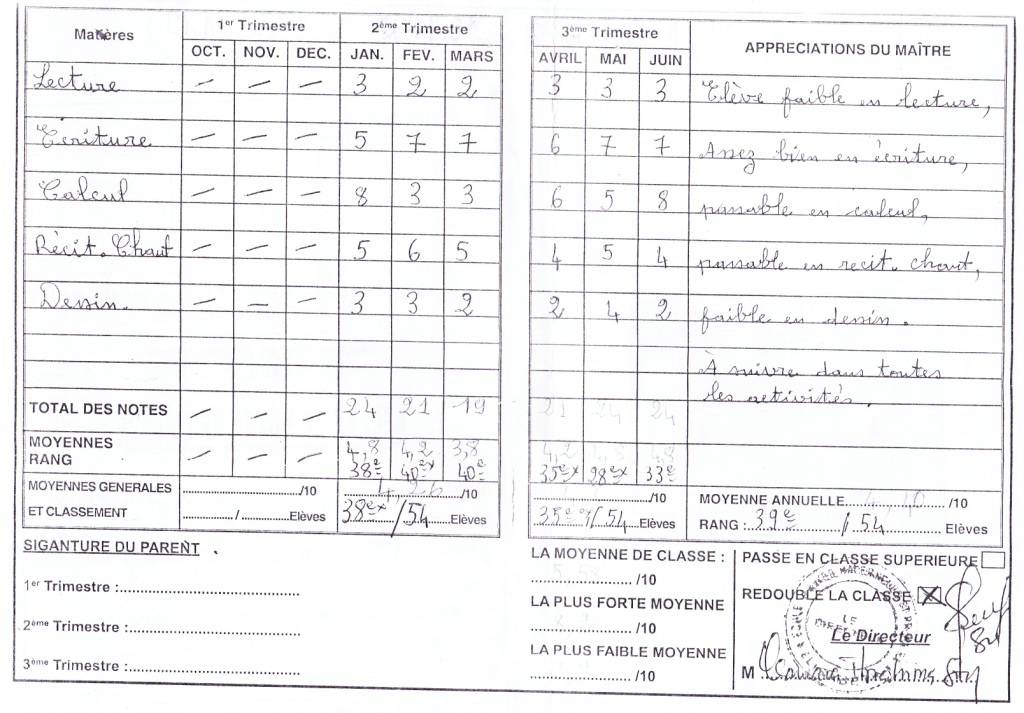 Matières 1er Trimestre 2ème Trimestre 3ème Trimestre APPRECIATIONS DU MAÎTRE
OCT. NOV. DEC. JAN. FEV. MARS AVRIL MAI JUIN
Lecture — — — 3 2 2 3 3 3 Elève faible en lecture,
Ecriture — — — 5 7 7 6 7 7 Assez bien en écriture,
Calcul — — — 8 3 3 6 5 8 passable en calcul,
Récit. Chant — — — 5 6 5 4 5 4 passable en recit. chant,
Dessin. — — — 3 3 2 2 4 2 faible en dessin.
À suivre dans toutes
les activités.
TOTAL DES NOTES — — — 24 21 19 21 24 24
MOYENNES — — — 4,8 4,2 3,8 4,2 4,8 4,8
RANG 38e 40ex 40e 35ex 28ex 33e
MOYENNES GENERALES ............/10 4,26 /10 ............/10 MOYENNE ANNUELLE....4,40 /10
ET CLASSEMENT ............/............Elèves 38ex/54 Elèves 35e /54 Elèves RANG : 39e / 54 Elèves
SIGANTURE DU PARENT .
1er Trimestre :....................
2ème Trimestre :....................
3ème Trimestre :....................
LA MOYENNE DE CLASSE :
.................... /10
LA PLUS FORTE MOYENNE
.................... /10
LA PLUS FAIBLE MOYENNE
.................... /10
PASSE EN CLASSE SUPERIEURE
REDOUBLE LA CLASSE X
Le Directeur
M